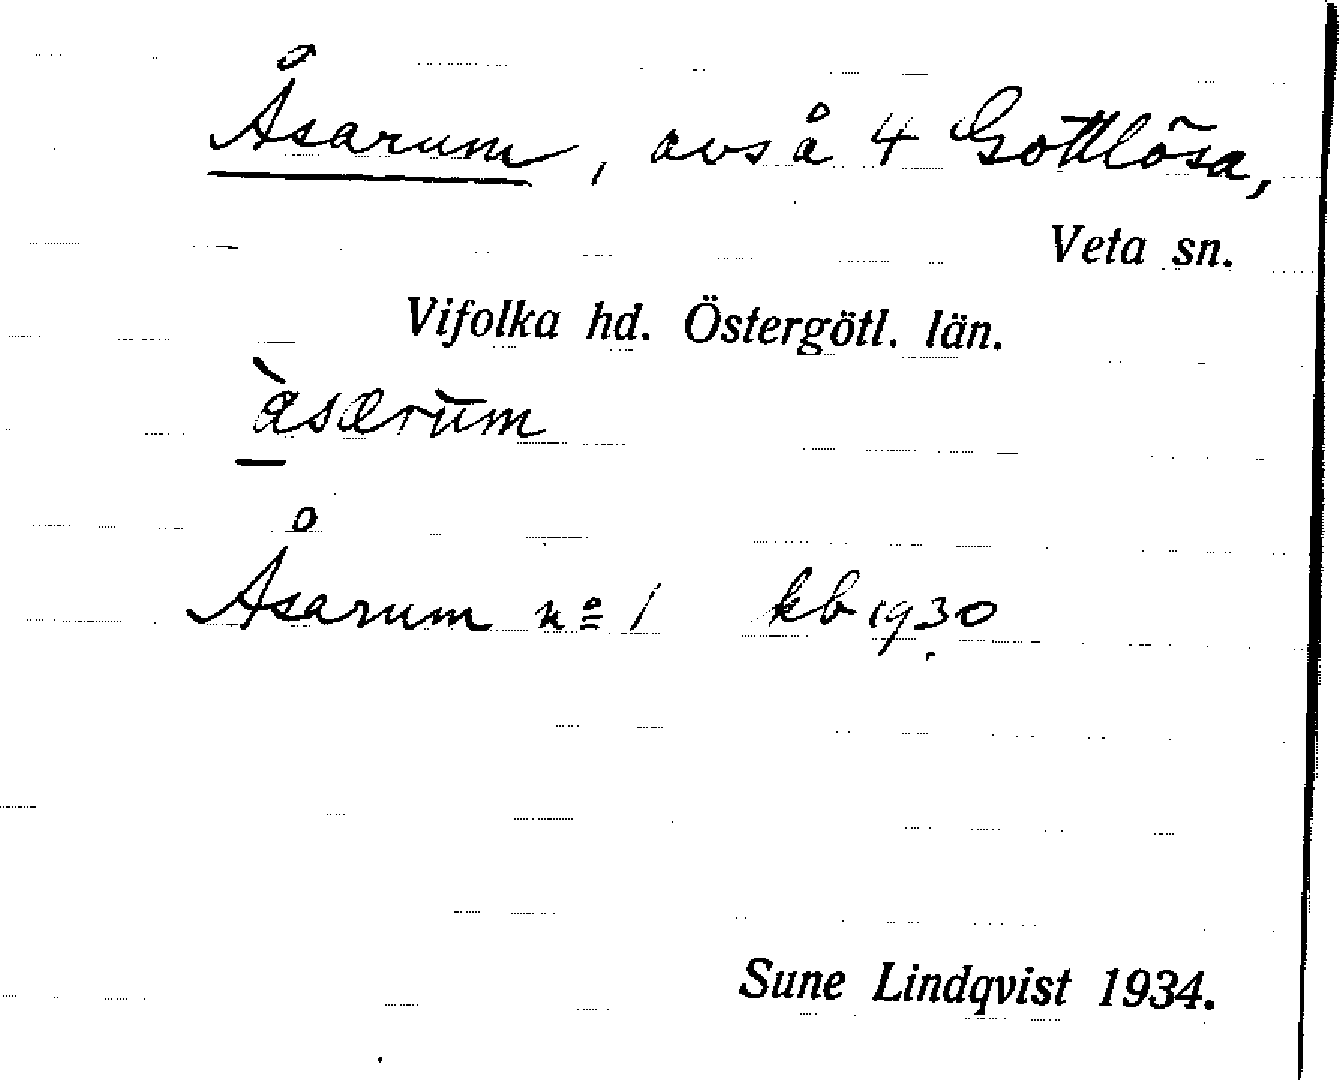 Åsarum, avs å 4 Gottlösa,
Veta sn.
Vifolka hd. Östergötl. län.
Åsarum nº 1 kb 1930
Sune Lindqvist 1934.